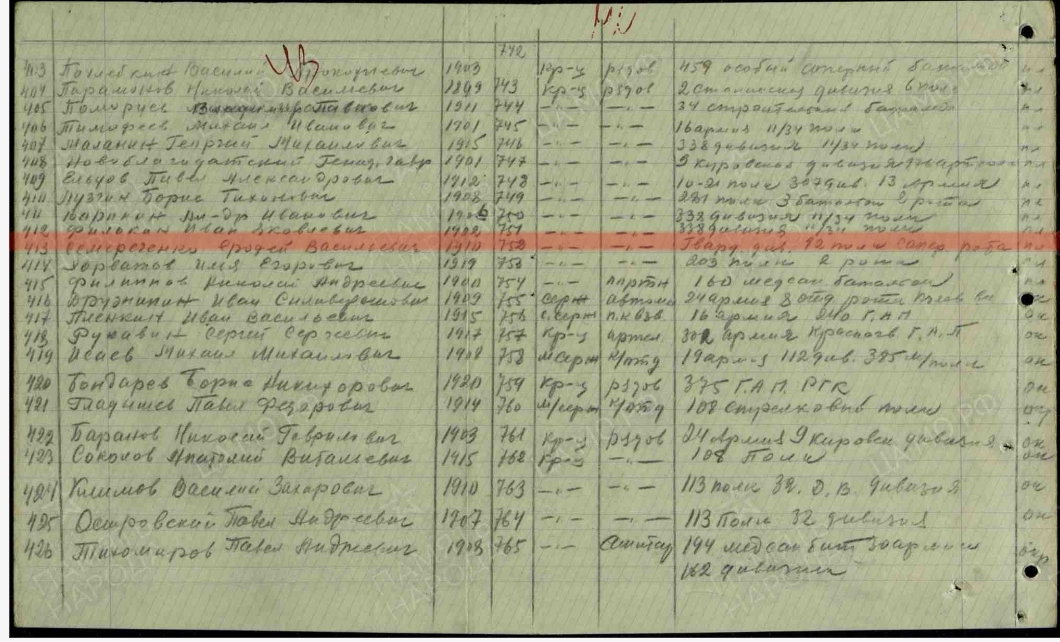 742
403 Василий 1903 кр-ц рядов 459 особый саперный батальон пл
404 Парамонов Николай Васильевич 1899 743 кр-ц рядов 2 дивизия 6 полк пл
405 1911 744 —"— —"— 34 строительный батальон пл
406 Тимофеев Михаил Иванович 1901 745 —"— —"— 16 армия 11/34 полк пл
407 Маланин Георгий Михайлович 1915 746 —"— —"— 338 дивизия 11/34 полк пл
408 Новоблагодатский 1901 747 —"— —"— 9 Кировская дивизия пл
409 Ельцов Павел Александрович 1912 748 —"— —"— 10-21 полк 307 див. 13 армия пл
410 Лузгин Борис Тихонович 1908 749 —"— —"— полк 3 батальон 2 рота пл
411 Ал-др Иванович 750 —"— —"— 338 дивизия 11/34 полк пл
412 Филькин Иван Яковлевич 1902 751 —"— —"— 338 дивизия 11/34 полк пл
413 Семереченко Васильевич 1910 752 —"— —"— Гвард. див. 12 полк сапер. рота пл
414 Горбатов Илья Егорович 1919 753 —"— —"— 203 полк 2 рота пл
415 Филиппов Николай Андреевич 1900 754 —"— 160 медсан батальон пл
416 Дружинин Иван Селиверстович 1909 755 серж 24 армия 8 отд рота ок
417 Пленкин Иван Васильевич 1915 756 с.серж п.квзв. 16 армия 240 Г.А.П ок
418 Рукавин Сергей Сергеевич 1917 757 кр-ц артил армия Красногв Г.А.П ок
419 Исаев Михаил Михайлович 1908 758 м серж к/отд 19 армия 112 див. 385 полк ок
420 Бондарев Борис Никифорович 1920 759 кр-ц рядов 375 Г.А.П. РГК ок
421 Гладышев Павел Федорович 1914 760 м/серж к/отд 108 стрелковый полк окр
422 Баранов Николай Гаврилович 1903 761 кр-ц рядов 24 армия 9 Кировск. дивизия ок
423 Соколов Анатолий Витальевич 1915 762 кр-ц —"— 108 полк ок
424 Климов Василий Захарович 1910 763 —"— —"— 113 полк 32. Д.В. дивизия ок
425 Островский Павел Андреевич 1907 764 —"— —"— 113 полк 32 дивизия ок
426 Тихомиров Павел Андреевич 1908 765 —"— санитар 194 медсанбат 30 армии окр
162 дивизии